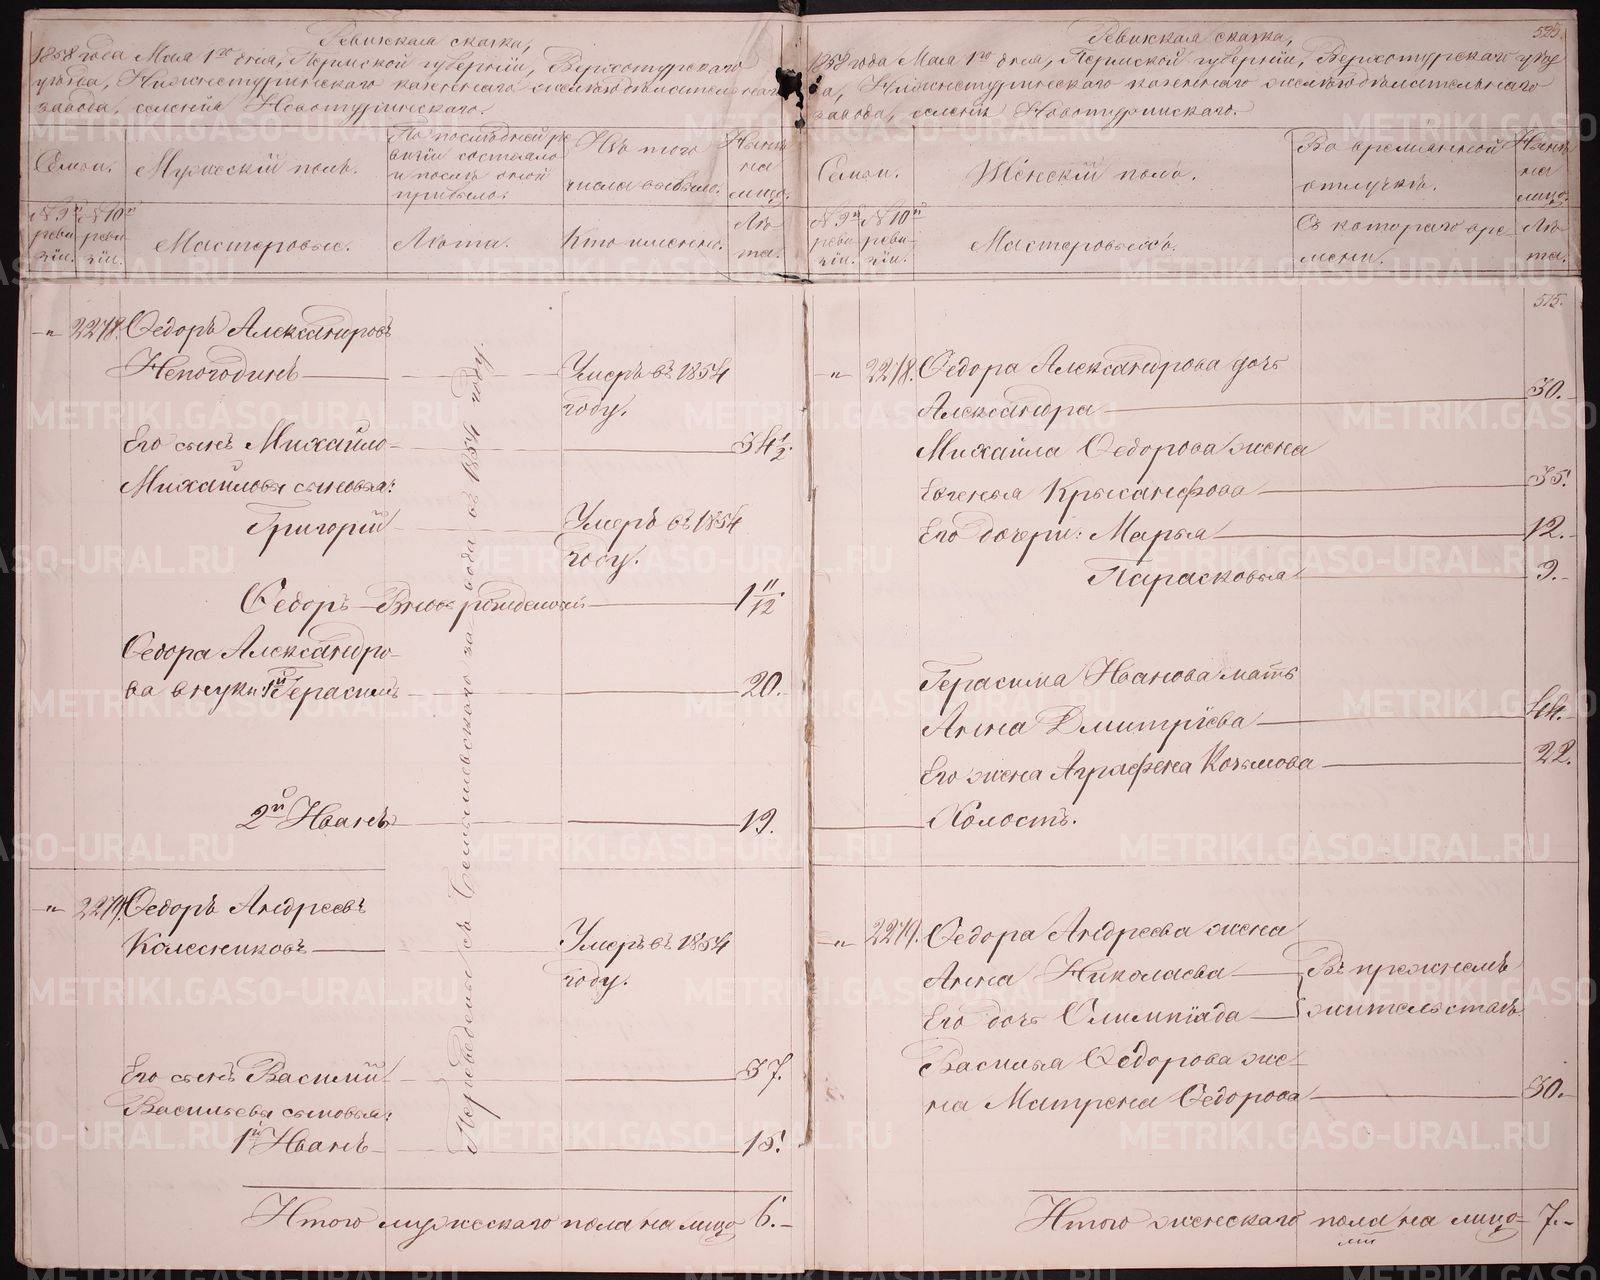 Ревизская сказка,
1858 года Мая 1го дня, Пермской губернiи, Верхотурскаго
уѣзда, Нижнетуринскаго казеннаго желѣзодѣлательнаго
завода, селенiя Новотуринскаго.
Семьи.
Мужескiй полъ.
По послѣдней ре
визiи состояло
и послѣ оной
прибыло.
Изъ того
числа выбыло.
Нынѣ
на
лицо.
№ 9й
реви
зiи.
№ 10й
реви
зiи.
Мастеровые.
Лѣта.
Кто именно.
Лѣ
та.
-„- 2278. Ѳедоръ Александровъ
Непогодинъ
Умеръ въ 1854
году.
Его сынъ Михайло
34 1/2.
Михайловы сыновья:
Григорiй
Умеръ въ 1854
году.
Ѳедоръ Вновь рожденный
1 11/12
Ѳедора Александро-
ва внуки: 1й Герасимъ
20.
2й Иванъ
19.
-„- 2279. Ѳедоръ Андреевъ
Колесниковъ
Умеръ въ 1854
году.
Его сынъ Василiй
37.
Васильевы сыновья:
1й Иванъ
15.
Итого мужескаго пола на лицо 6.-
Переведены съ завода въ 1854 году.
525.
Ревизская сказка,
1858 года Мая 1го дня, Пермской губернiи, Верхотурскаго уѣз
да, Нижнетуринскаго казеннаго желѣзодѣлательнаго
завода, селенiя Новотуринскаго.
Семьи.
Женскiй полъ.
Во временной
отлучкѣ.
Нынѣ
на
лицо.
№ 9й
реви-
зiи.
№ 10й
реви-
зiи.
Мастеровыхъ.
Съ котораго вре-
мени.
Лѣ-
та.
515.
-„- 2278. Ѳедора Александрова дочь
Александра
30.
Михаила Ѳедорова жена
Евгенья Крысанфова
35.
Его дочери: Марья
12.
Парасковья
9.
Герасима Иванова мать
Анна Дмитрiева
44.
Его жена Аграфена Козьмова
22.
Холостъ.
-„- 2279. Ѳедора Андреева жена
Анна Николаева
Его дочь Олимпiада
Въ прежнемъ
жительствѣ
Василья Ѳедорова же-
на Матрена Ѳедорова
30.
Итого женскаго пола на лицо 7.-
METRIKI.GASO-URAL.RU